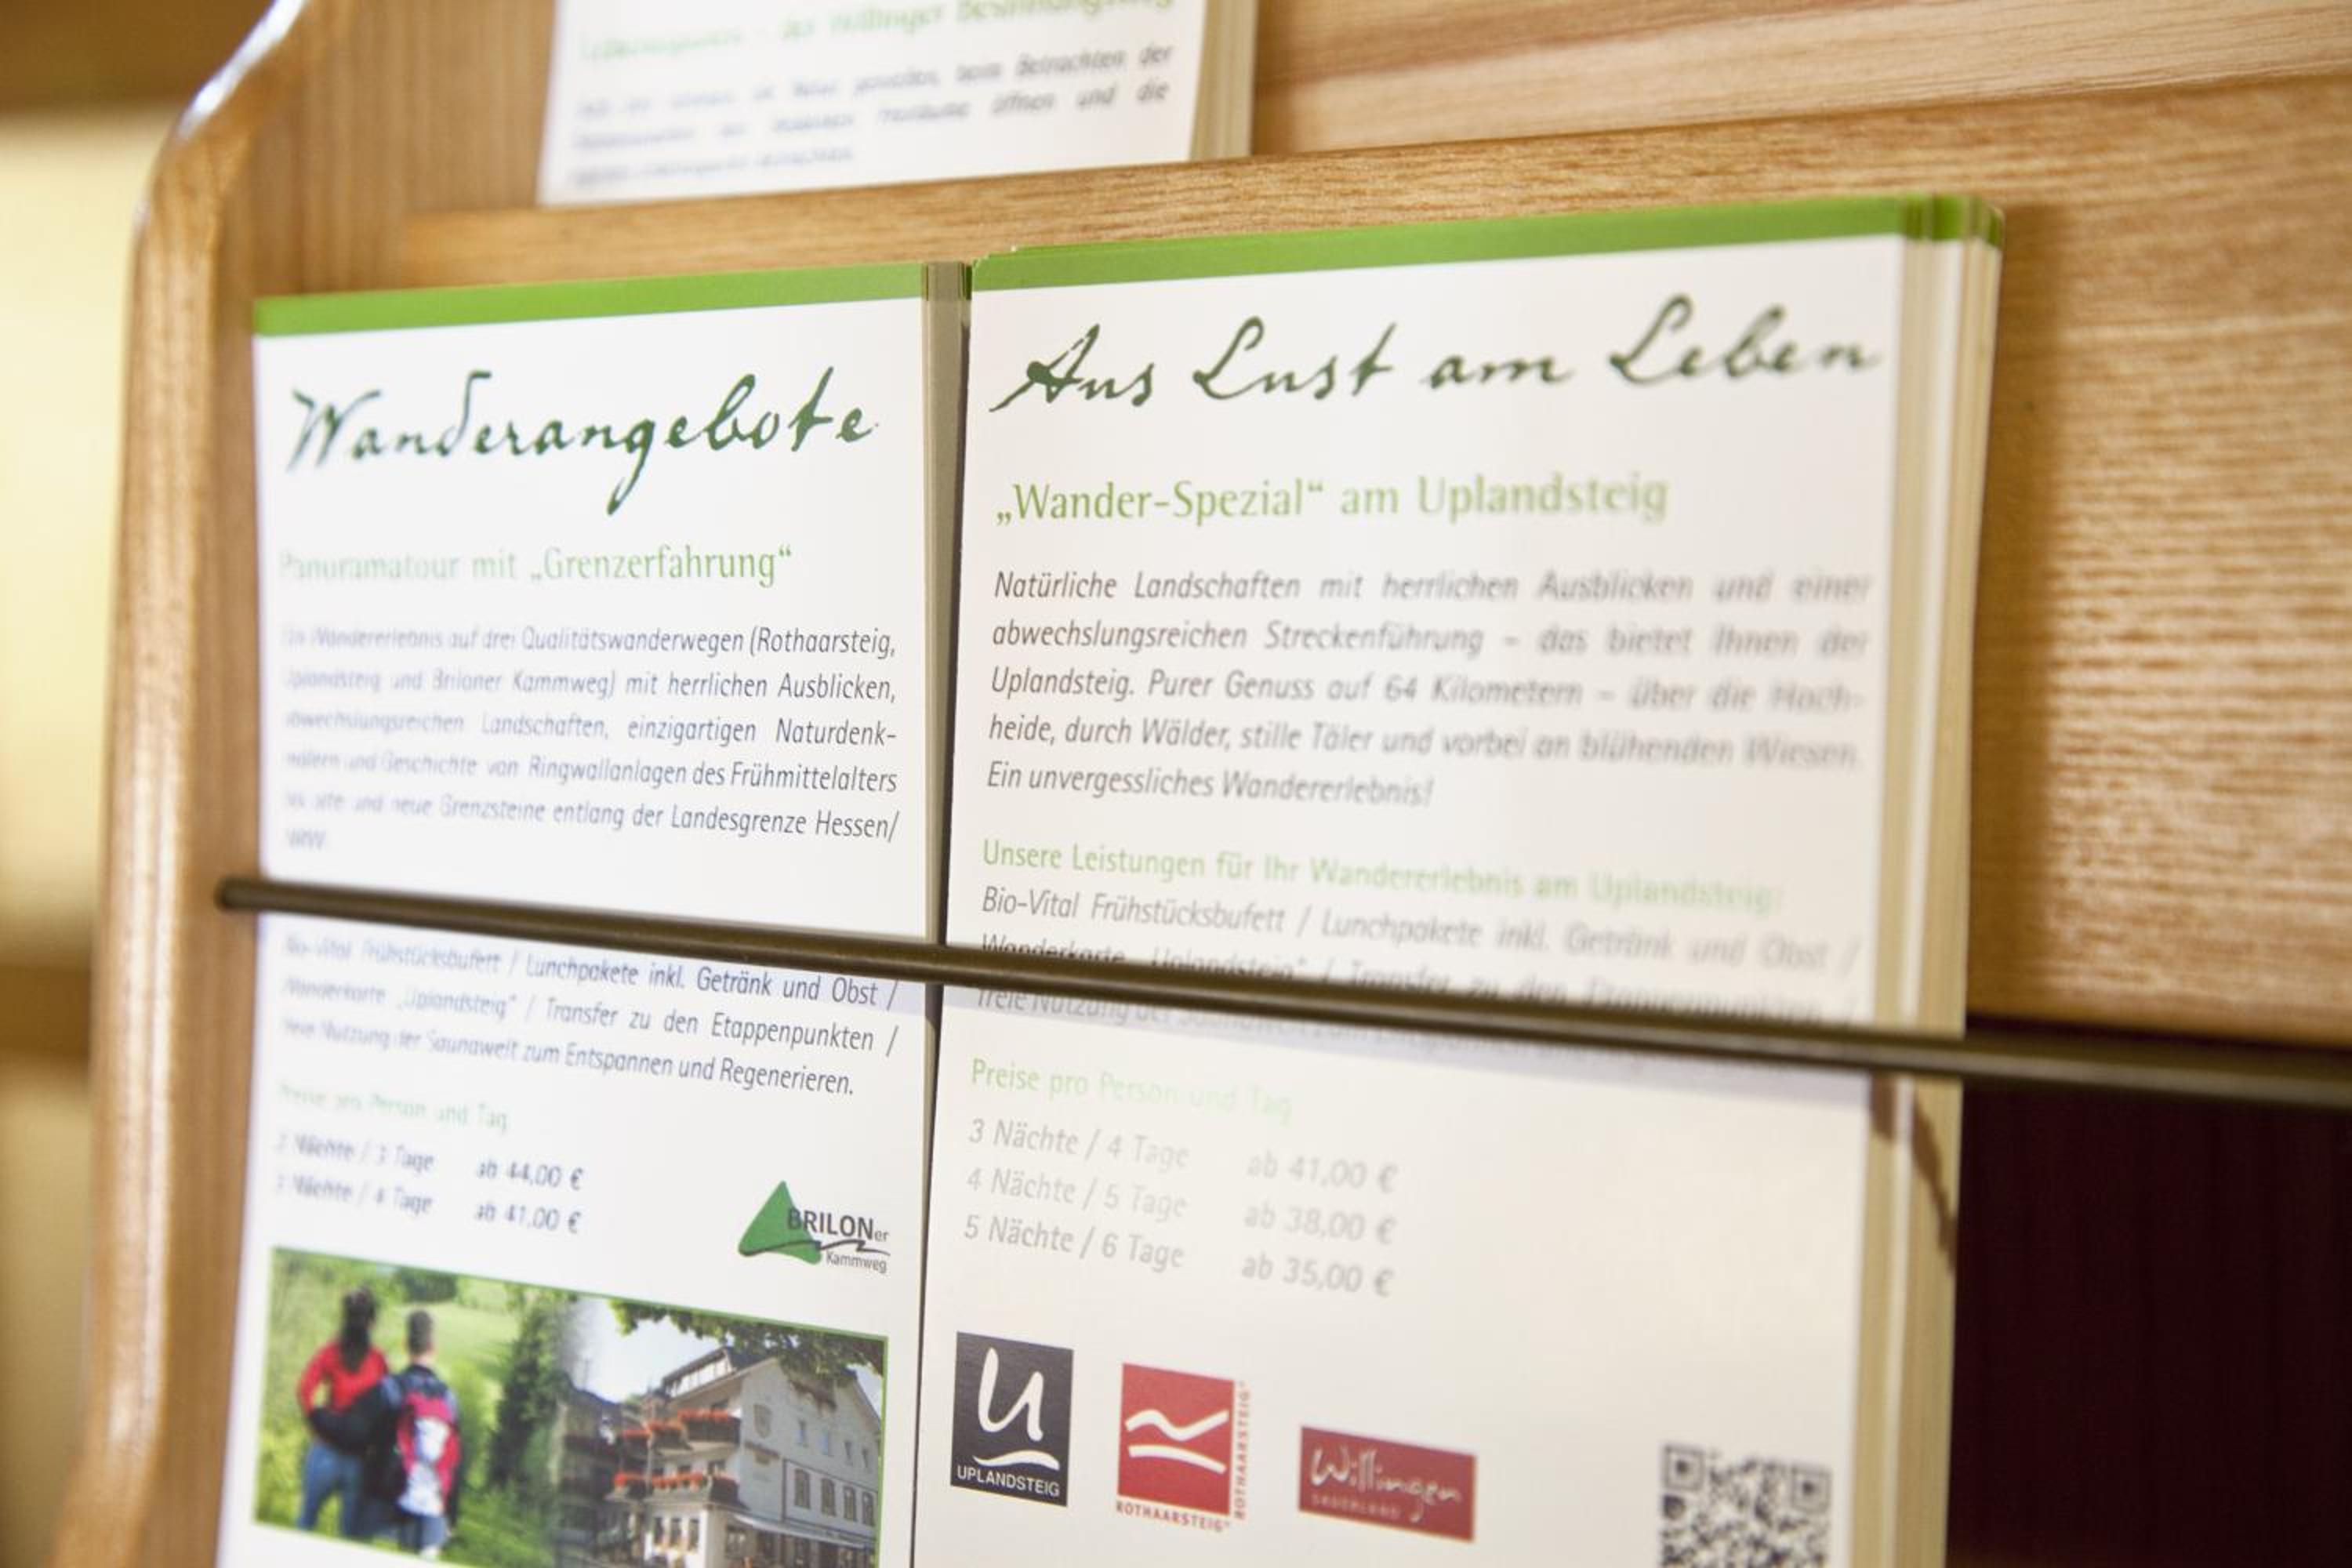 der Willinger Besinnungsweg
beim Betrachten der
öffnen und die
Wanderangebote
Panoramatour mit „Grenzerfahrung“
Ein Wandererlebnis auf drei Qualitätswanderwegen (Rothaarsteig,
Uplandsteig und Briloner Kammweg) mit herrlichen Ausblicken,
abwechslungsreichen Landschaften, einzigartigen Naturdenk-
mälern und Geschichte von Ringwallanlagen des Frühmittelalters
bis alte und neue Grenzsteine entlang der Landesgrenze Hessen/
NRW.
Bio-Vital Frühstücksbufett / Lunchpakete inkl. Getränk und Obst /
Wanderkarte „Uplandsteig“ / Transfer zu den Etappenpunkten /
freie Nutzung der Saunawelt zum Entspannen und Regenerieren.
Preise pro Person und Tag
2 Nächte / 3 Tage ab 44,00 €
3 Nächte / 4 Tage ab 41,00 €
BRILONer
Kammweg
Aus Lust am Leben
„Wander-Spezial“ am Uplandsteig
Natürliche Landschaften mit herrlichen Ausblicken und einer
abwechslungsreichen Streckenführung – das bietet Ihnen der
Uplandsteig. Purer Genuss auf 64 Kilometern – über die Hoch-
heide, durch Wälder, stille Täler und vorbei an blühenden Wiesen.
Ein unvergessliches Wandererlebnis!
Unsere Leistungen für Ihr Wandererlebnis am Uplandsteig:
Bio-Vital Frühstücksbufett / Lunchpakete inkl. Getränk und Obst /
Wanderkarte „Uplandsteig“ / Transfer zu den Etappenpunkten /
freie Nutzung der Saunawelt zum Entspannen und
Preise pro Person und Tag
3 Nächte / 4 Tage ab 41,00 €
4 Nächte / 5 Tage ab 38,00 €
5 Nächte / 6 Tage ab 35,00 €
U
UPLANDSTEIG
ROTHAARSTEIG
ROTHAARSTEIG
Willingen
SAUERLAND